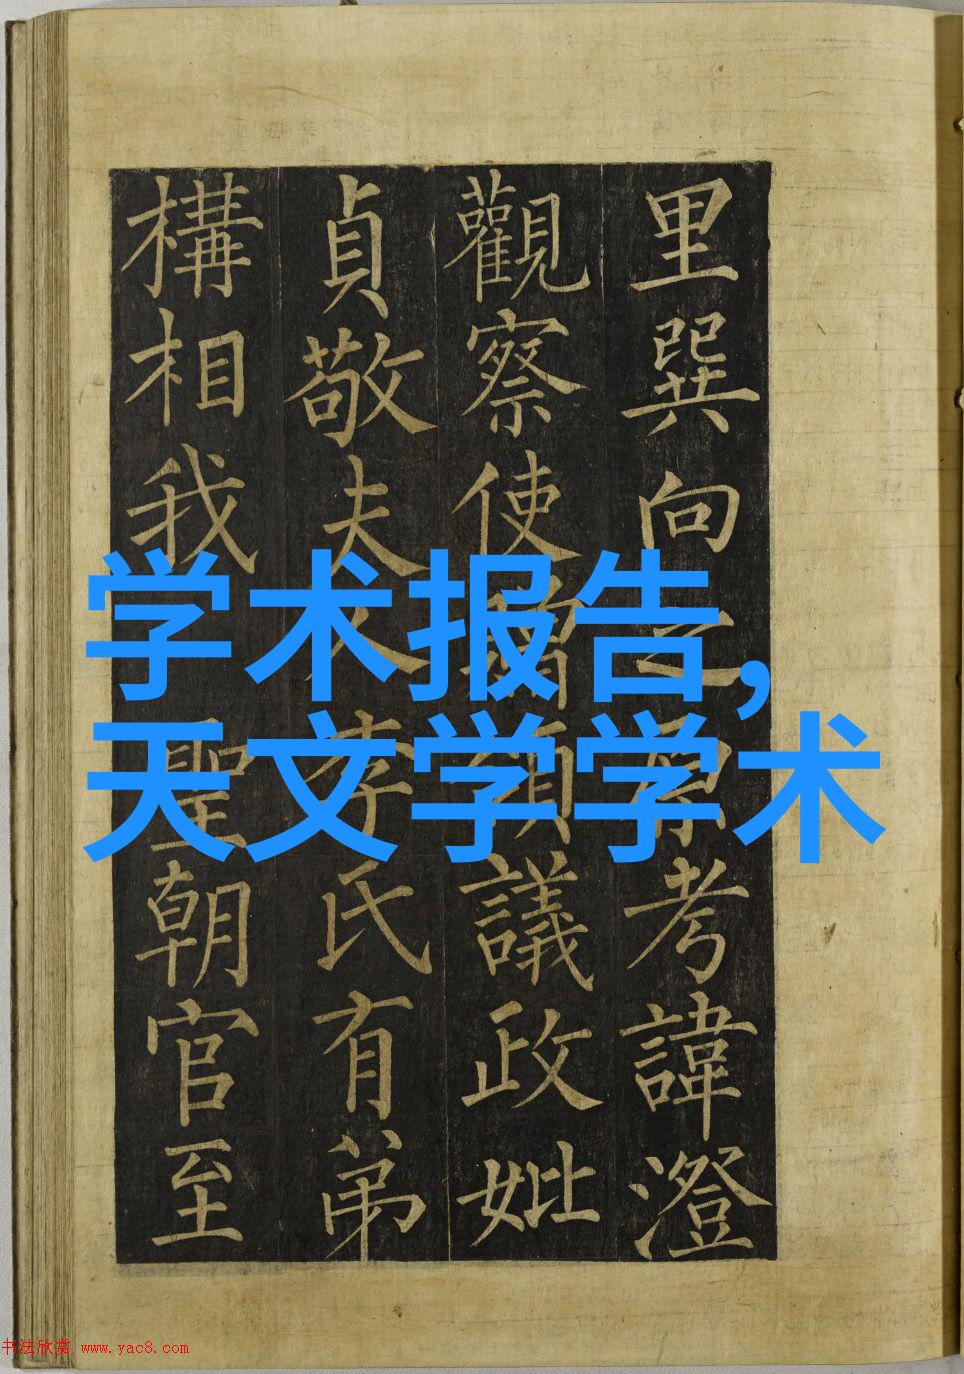 里巽向之原考諱澄
觀察使贈領議政妣
貞敬夫人李氏有弟
構相我 聖朝官至
学术报告,
天文学学术
书法欣赏 www.yac8.com